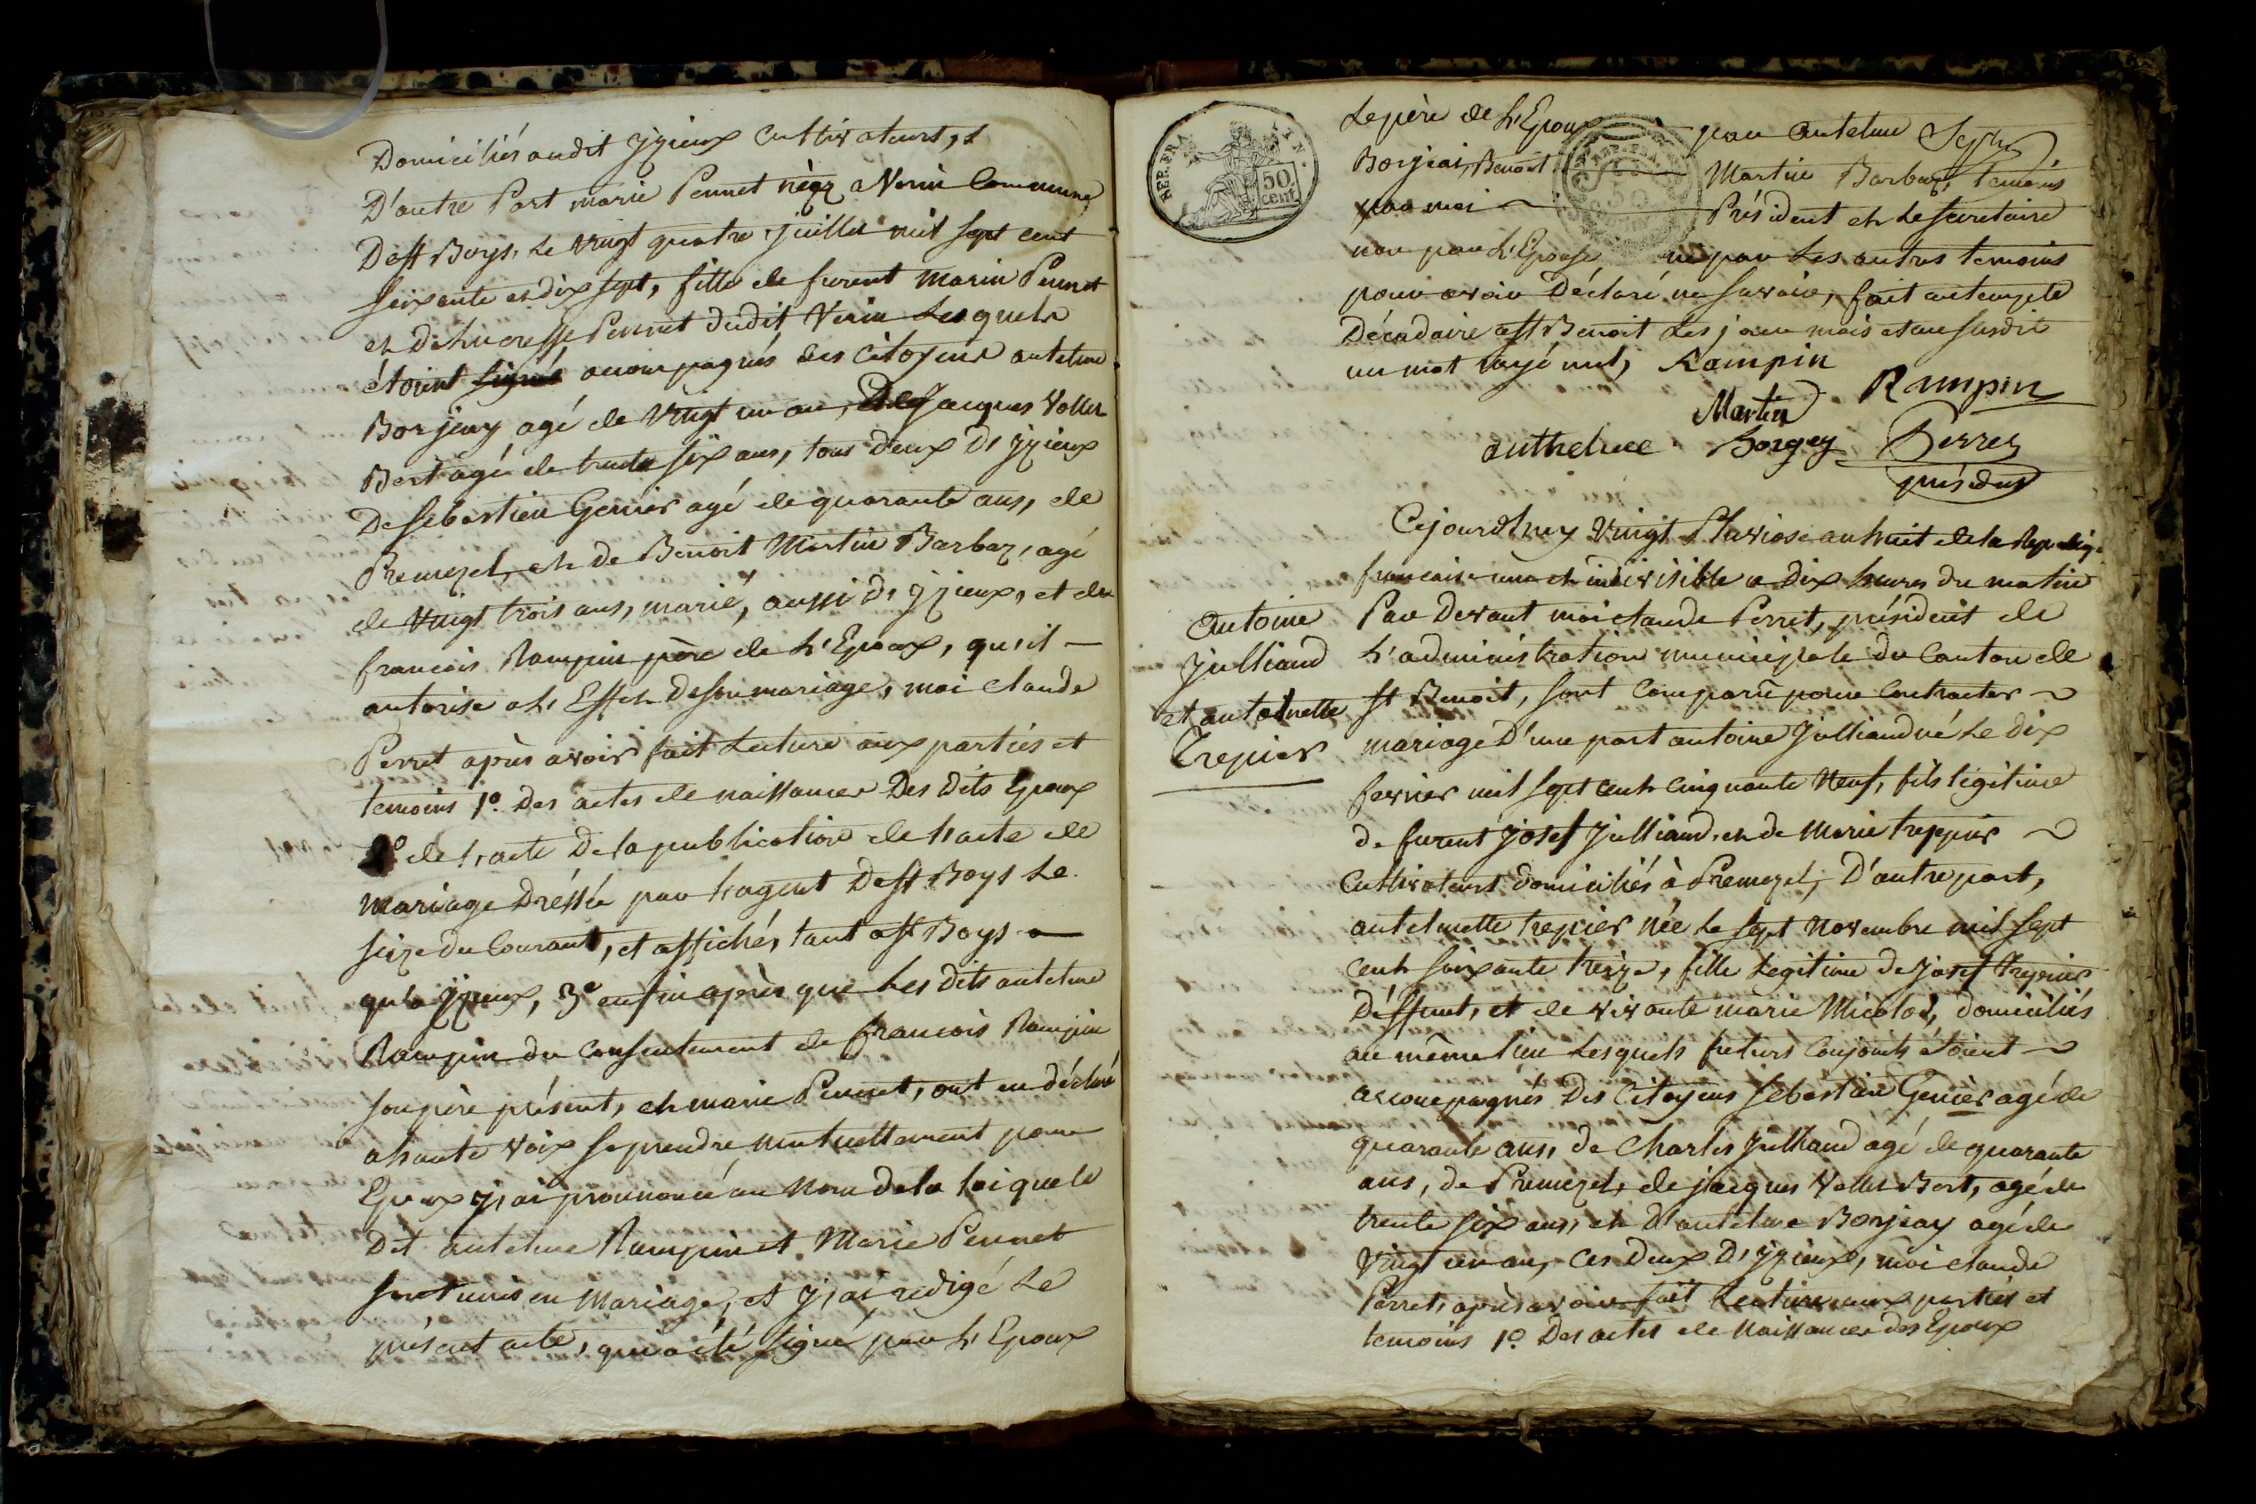 Domiciliés audit yzieux Cultivateurs, &
D'autre Part marie Pennet née a Verin Commune
De st Boys, Le vingt quatre juillet mil sept cent
soixante et dix sept, fille de furent Marin Pennet
et de Pennet dudit Verin Lesquels
étoient signé accompagnés des Citoyens antelme
Borjeay agé de Vingt un an, De Jacques Vollet
Bert agé de trente six ans, tous deux D'yzieux
De sebastien Genier agé de quarante ans, de
Premezel, et de Benoit Martin Barbaz, agé
de Vingt trois ans, marié, aussi D'yzieux, et de
francois Rampin père de L'Epoux, qu'il
autorise a L'Effet de son mariage, moi Claude
Perret après avoir fait Lecture aux parties et
temoins 1º. Des actes de naissances Des Dits Epoux
2º de L'acte De la publication de L'acte de
mariage Dréssée par L'agent De st Boys Le
seize du Courant, et affiché, tant a st Boys
qu'a yzieux, 3º enfin après que Les Dits antelme
Rampin du Consentement de francois Rampin
son père présent, et marie Pennet, ont eu déclaré
a haute Voix se prendre mutuellement pour
Epoux j'ai prononcé au Nom de la loi que le
Dit antelme Rampin et Marie Pennet
sont unis en Mariage, et j'ai redigé Le
présent acte, qui a été signé par L'Epoux
REP. FRA.
50
cent
Le père de L'Epoux par antelme
Borjeai, Benoit Martin Barbaz, temoins
par moi Président et Le secretaire
non par L'Epouse, ni par Les autres temoins
pour avoir Déclaré ne savoir, fait au temple
Décadaire a st Benoit Les jour mois et an susdit
un mot rayé nul, Rampin
Rampin
Martin
anthelme Borgey Perret
président
Cejourdhuy Vingt Pluviose an huit de la Republiq.
francaise une et indivisible a Dix heures du matin
Par Devant moi Claude Perret, président de
L'administration municipale du Canton de
st Benoit, sont Comparû pour Contracter
mariage D'une part antoine Julliand né Le Dix
fevrier mil sept cent Cinquante Neuf, fils légitime
de furent Josef Julliand, et de Marie treppier
Cultivateurs domiciliés à Premezel; D'autre part,
antelmette trepier née Le sept Novembre mil sept
cent soixante treize, fille Legitime de Josef trepier
Déffunt, et de vivante marie Micolod, domiciliés
au même lieu Lesquels futurs Conjoints étoient
accompagnés Des Citoyens sebastien Genier agé de
quarante ans, de Charles Julliand agé de quarante
ans, de Premezel, de jacques Vollet Bert, agé de
trente six ans, et D'antelme Borjeay agé de
Vingt un an, Ces Deux D'yzieux, moi Claude
Perret, après avoir fait Lecture aux parties et
temoins 1º. Des actes de Naissances des Epoux
antoine
Julliand
et antoinette
Trepier